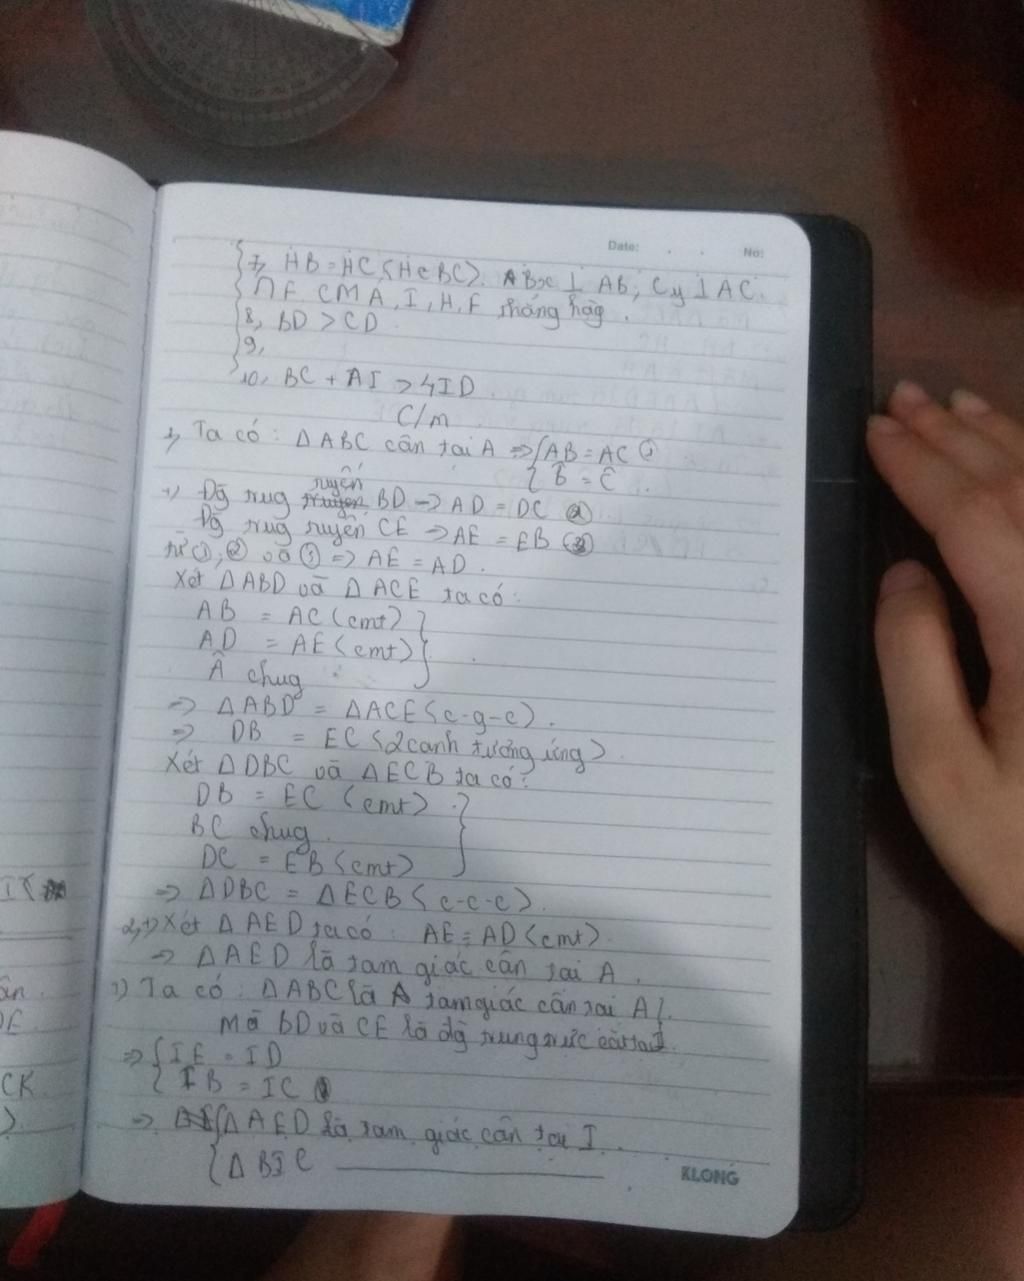 Date: . . No:
7, HB = HC (H∈BC). Bx ⊥ AB, Cy ⊥ AC.
∩ F CM A, I, H, F thẳng hàg.
8, BD > CD.
9,
10, BC + AI > 4ID.
C/m
1, Ta có: Δ ABC cân tại A => { AB = AC ①
{ B̂ = Ĉ.
tuyến
+) Đg trug BD -> AD = DC ②
Đg trug tuyến CE -> AE = EB ③
từ ①, ② và ③ => AE = AD.
Xét Δ ABD và Δ ACE ta có:
AB = AC (cmt) }
AD = AE (cmt) }
Â chug
=> Δ ABD = Δ ACE (c-g-c).
=> DB = EC (2 canh tương ứng)
Xét Δ DBC và Δ ECB ta có:
DB = EC (cmt) }
BC chug.
DC = EB (cmt)
=> Δ DBC = Δ ECB (c-c-c).
2, +) Xét Δ AED ta có: AE = AD (cmt)
=> Δ AED là tam giác cân tai A.
+) Ta có: Δ ABC là tam giác cân tai A }.
Mà BD và CE là đg trung trực cắt tai I
=> { IE = ID
{ IB = IC
=> { Δ AED là tam giác cân tai I.
{ Δ BIC
KLONG
CK